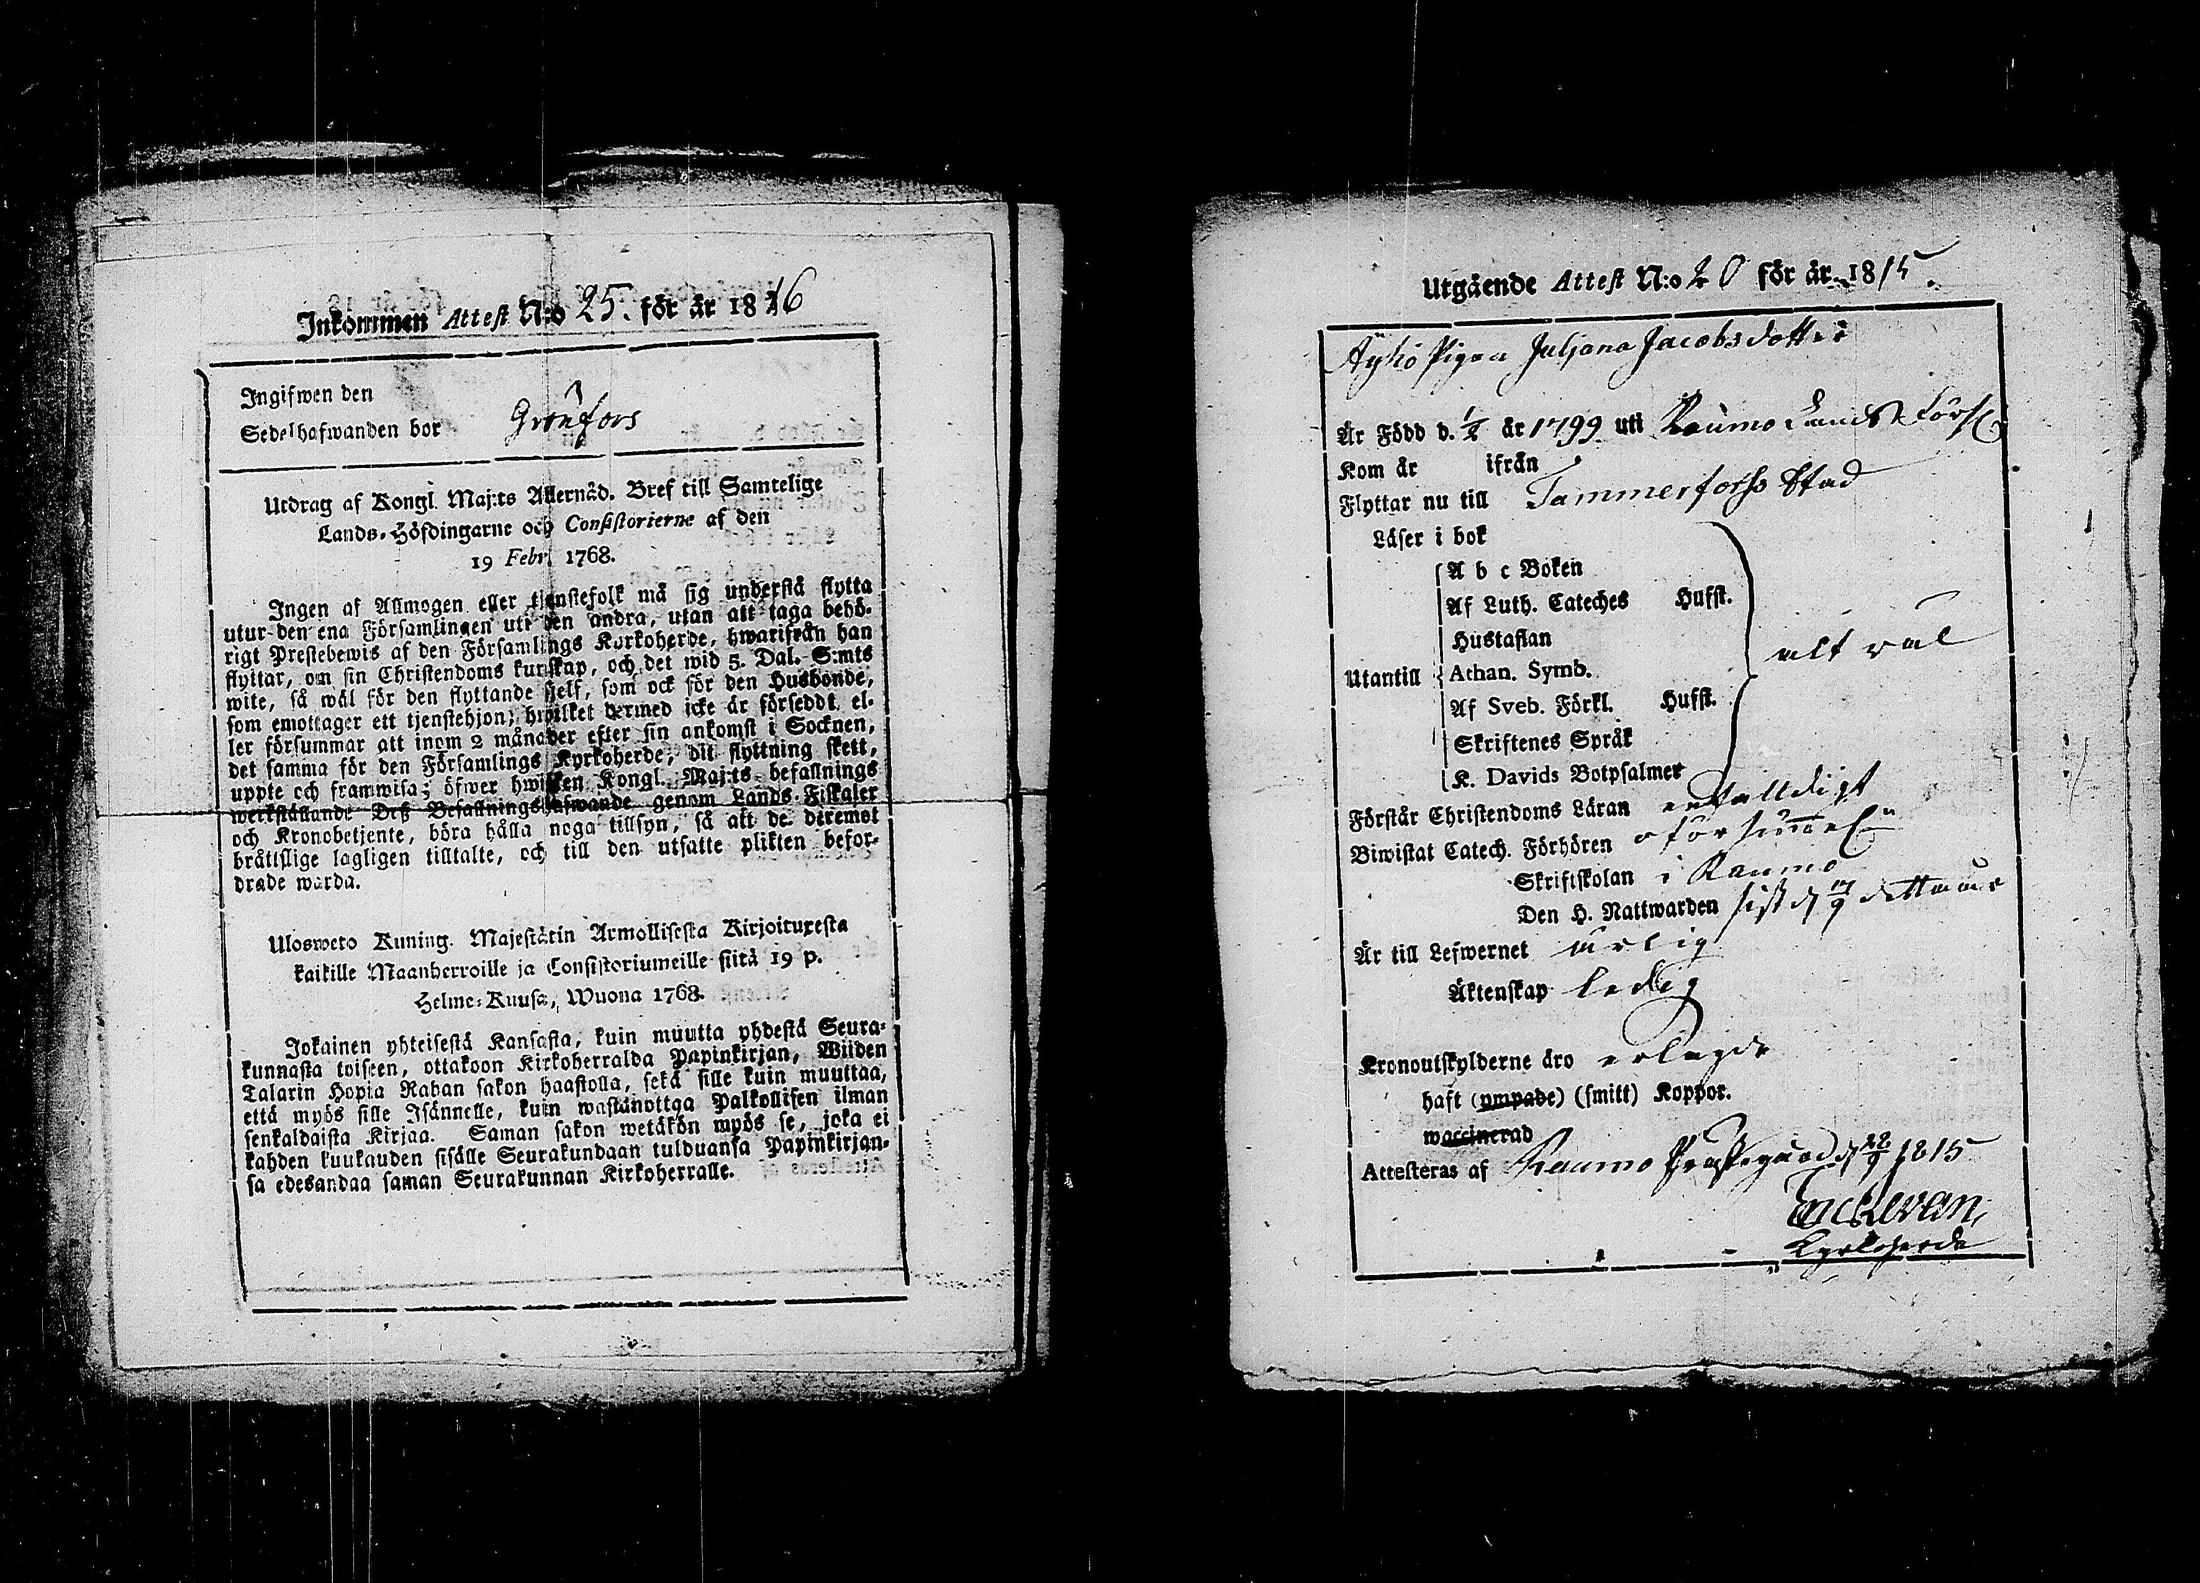 Inkommen Attest N:o 25. för år 1816
Ingifwen den
Sedelhafwanden bor Grönfors
Utdrag af Kongl. Maj:ts Allernåd. Bref till Samtelige
Lands-Höfdingarne och Consistorierne af den
19 Febr. 1768.
Ingen af Allmogen eller tjenstefolk må sig understå flytta
utur den ena Församlingen uti den andra, utan att taga behö-
rigt Prestebewis af den Församlings Kyrkoherde, hwarifrån han
flyttar, om sin Christendoms kunskap, och det wid 5. Dal. S:mts
wite, så wäl för den flyttande sjelf, som ock för den Husbonde,
som emottager ett tjenstehjon; hwilket dermed icke är försedt, el-
ler försummar att inom 2 månader efter sin ankomst i Socknen,
det samma för den Församlings Kyrkoherde, dit flyttning skett,
uppte och framwisa; öfwer hwilken Kongl. Maj:ts befallnings
werkställande Deß Befallningshafwande genom Lands-Fiskaler
och Kronobetjente, böra hålla noga tillsyn, så att de deremot
bråttslige lagligen tilltalte, och till den utsatte plikten befor-
drade warda.
Ulosweto Kuning. Majestätin Armollisesta Kirjoituxesta
kaikille Maanherroille ja Consistoriumeille siitä 19 p.
Helme-Kuusa, Wuona 1768.
Jokainen yhteisestä Kansasta, kuin muutta yhdestä Seura-
kunnasta toiseen, ottakoon Kirkoherralda Papinkirjan, Wiiden
Talarin Hopia Rahan sakon haastolla, sekä sille kuin muuttaa,
että myös sille Isännelle, kuin wastanottaa Palkollisen ilman
senkaldaista Kirjaa. Saman sakon wetäkön myös se, joka ei
kahden kuukauden sisälle Seurakundaan tulduansa Papinkirjan-
sa edesandaa saman Seurakunnan Kirkoherralle.
Utgående Attest N:o 20 för år 1815.
Äyhö Pigan Juljana Jacobsdotter
Är Född d. 1/2 år 1799 uti Raumo Lands Förs
Kom år ifrån
Flyttar nu till Tammerforss Stad
Läser i bok
A b c Boken
Af Luth. Cateches Hufst.
Hustaflan
Utantill Athan. Symb. alt väl
Af Sveb. Förkl. Hufst.
Skriftenes Språk
K. Davids Botpsalmer
Förstår Christendoms Läran enfalldigt
Biwistat Catech. Förhören
Skriftskolan i Raumo
Den H. Nattwarden sist d
Är till Lefwernet ärlig
Äktenskap ledig
Kronoutskylderne äro erlagde
haft (ympade) (smitt) Koppor.
waccinerad
Attesteras af Raumo Prästegård d 28/9 1815
Kyrkoherde